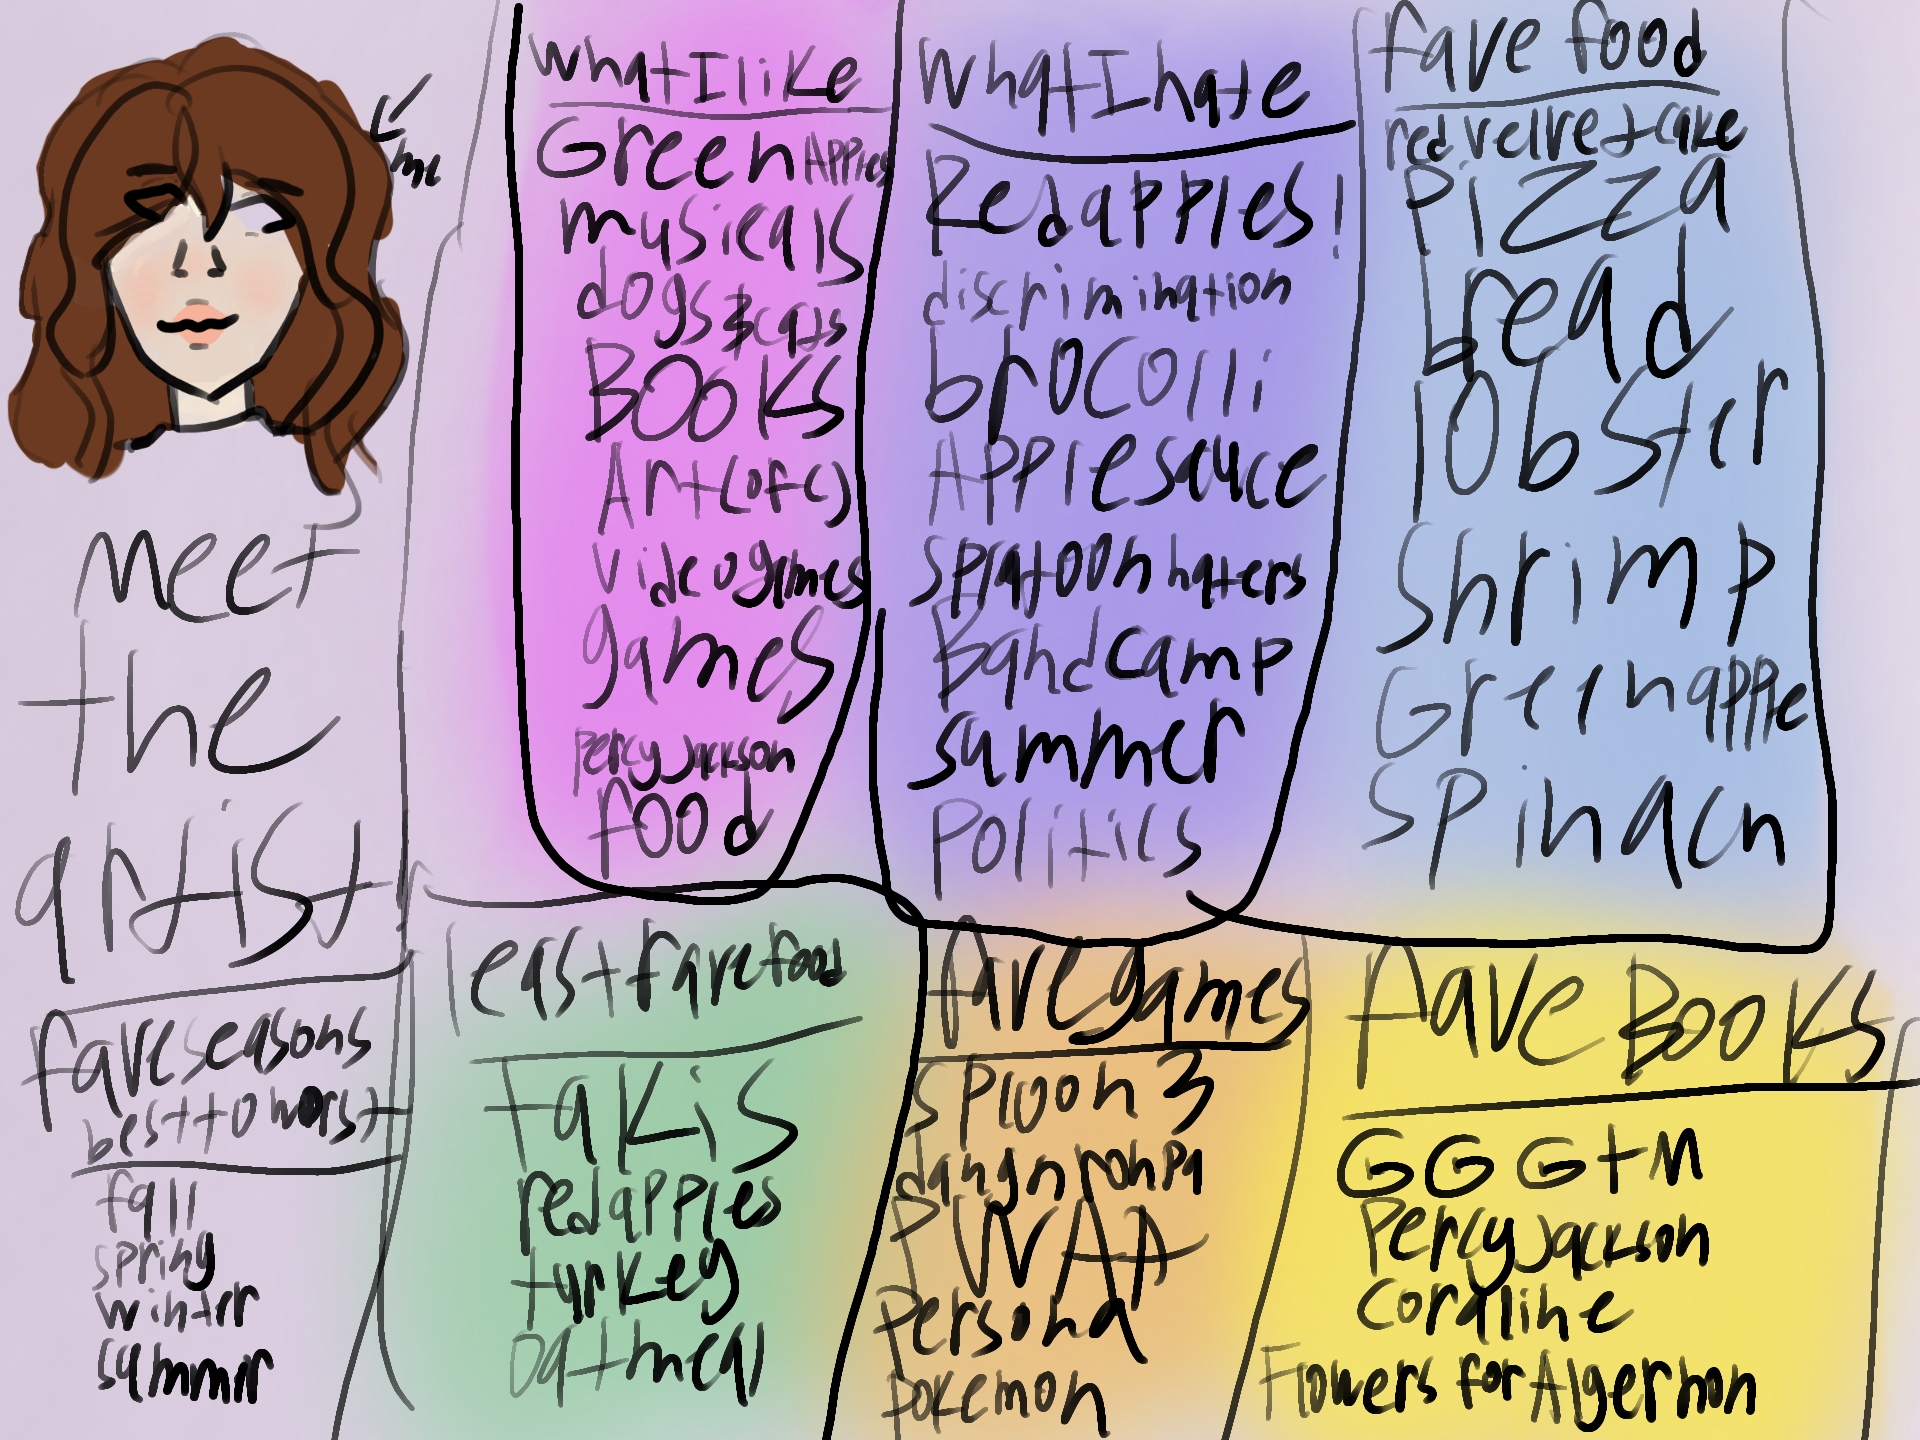 me
meet
the
artist
fave seasons
best to worst
fall
spring
winter
summer
what I like
Green Apples
musicals
dogs & cats
BOOKS
Art (ofc)
videogames
games
percy Jackson
food
what I hate
Red apples!
discrimination
brocolli
Applesauce
splatoon haters
Band camp
summer
politics
fave food
red velvet cake
Pizza
bread
lobster
shrimp
Green apple
spinach
least fave food
Takis
red apples
turkey
oatmeal
fave games
sploon 3
dangnronpa
PWAA
Persona
pokemon
fave Books
GGGtM
Percy Jackson
Coraline
Flowers for Algernon